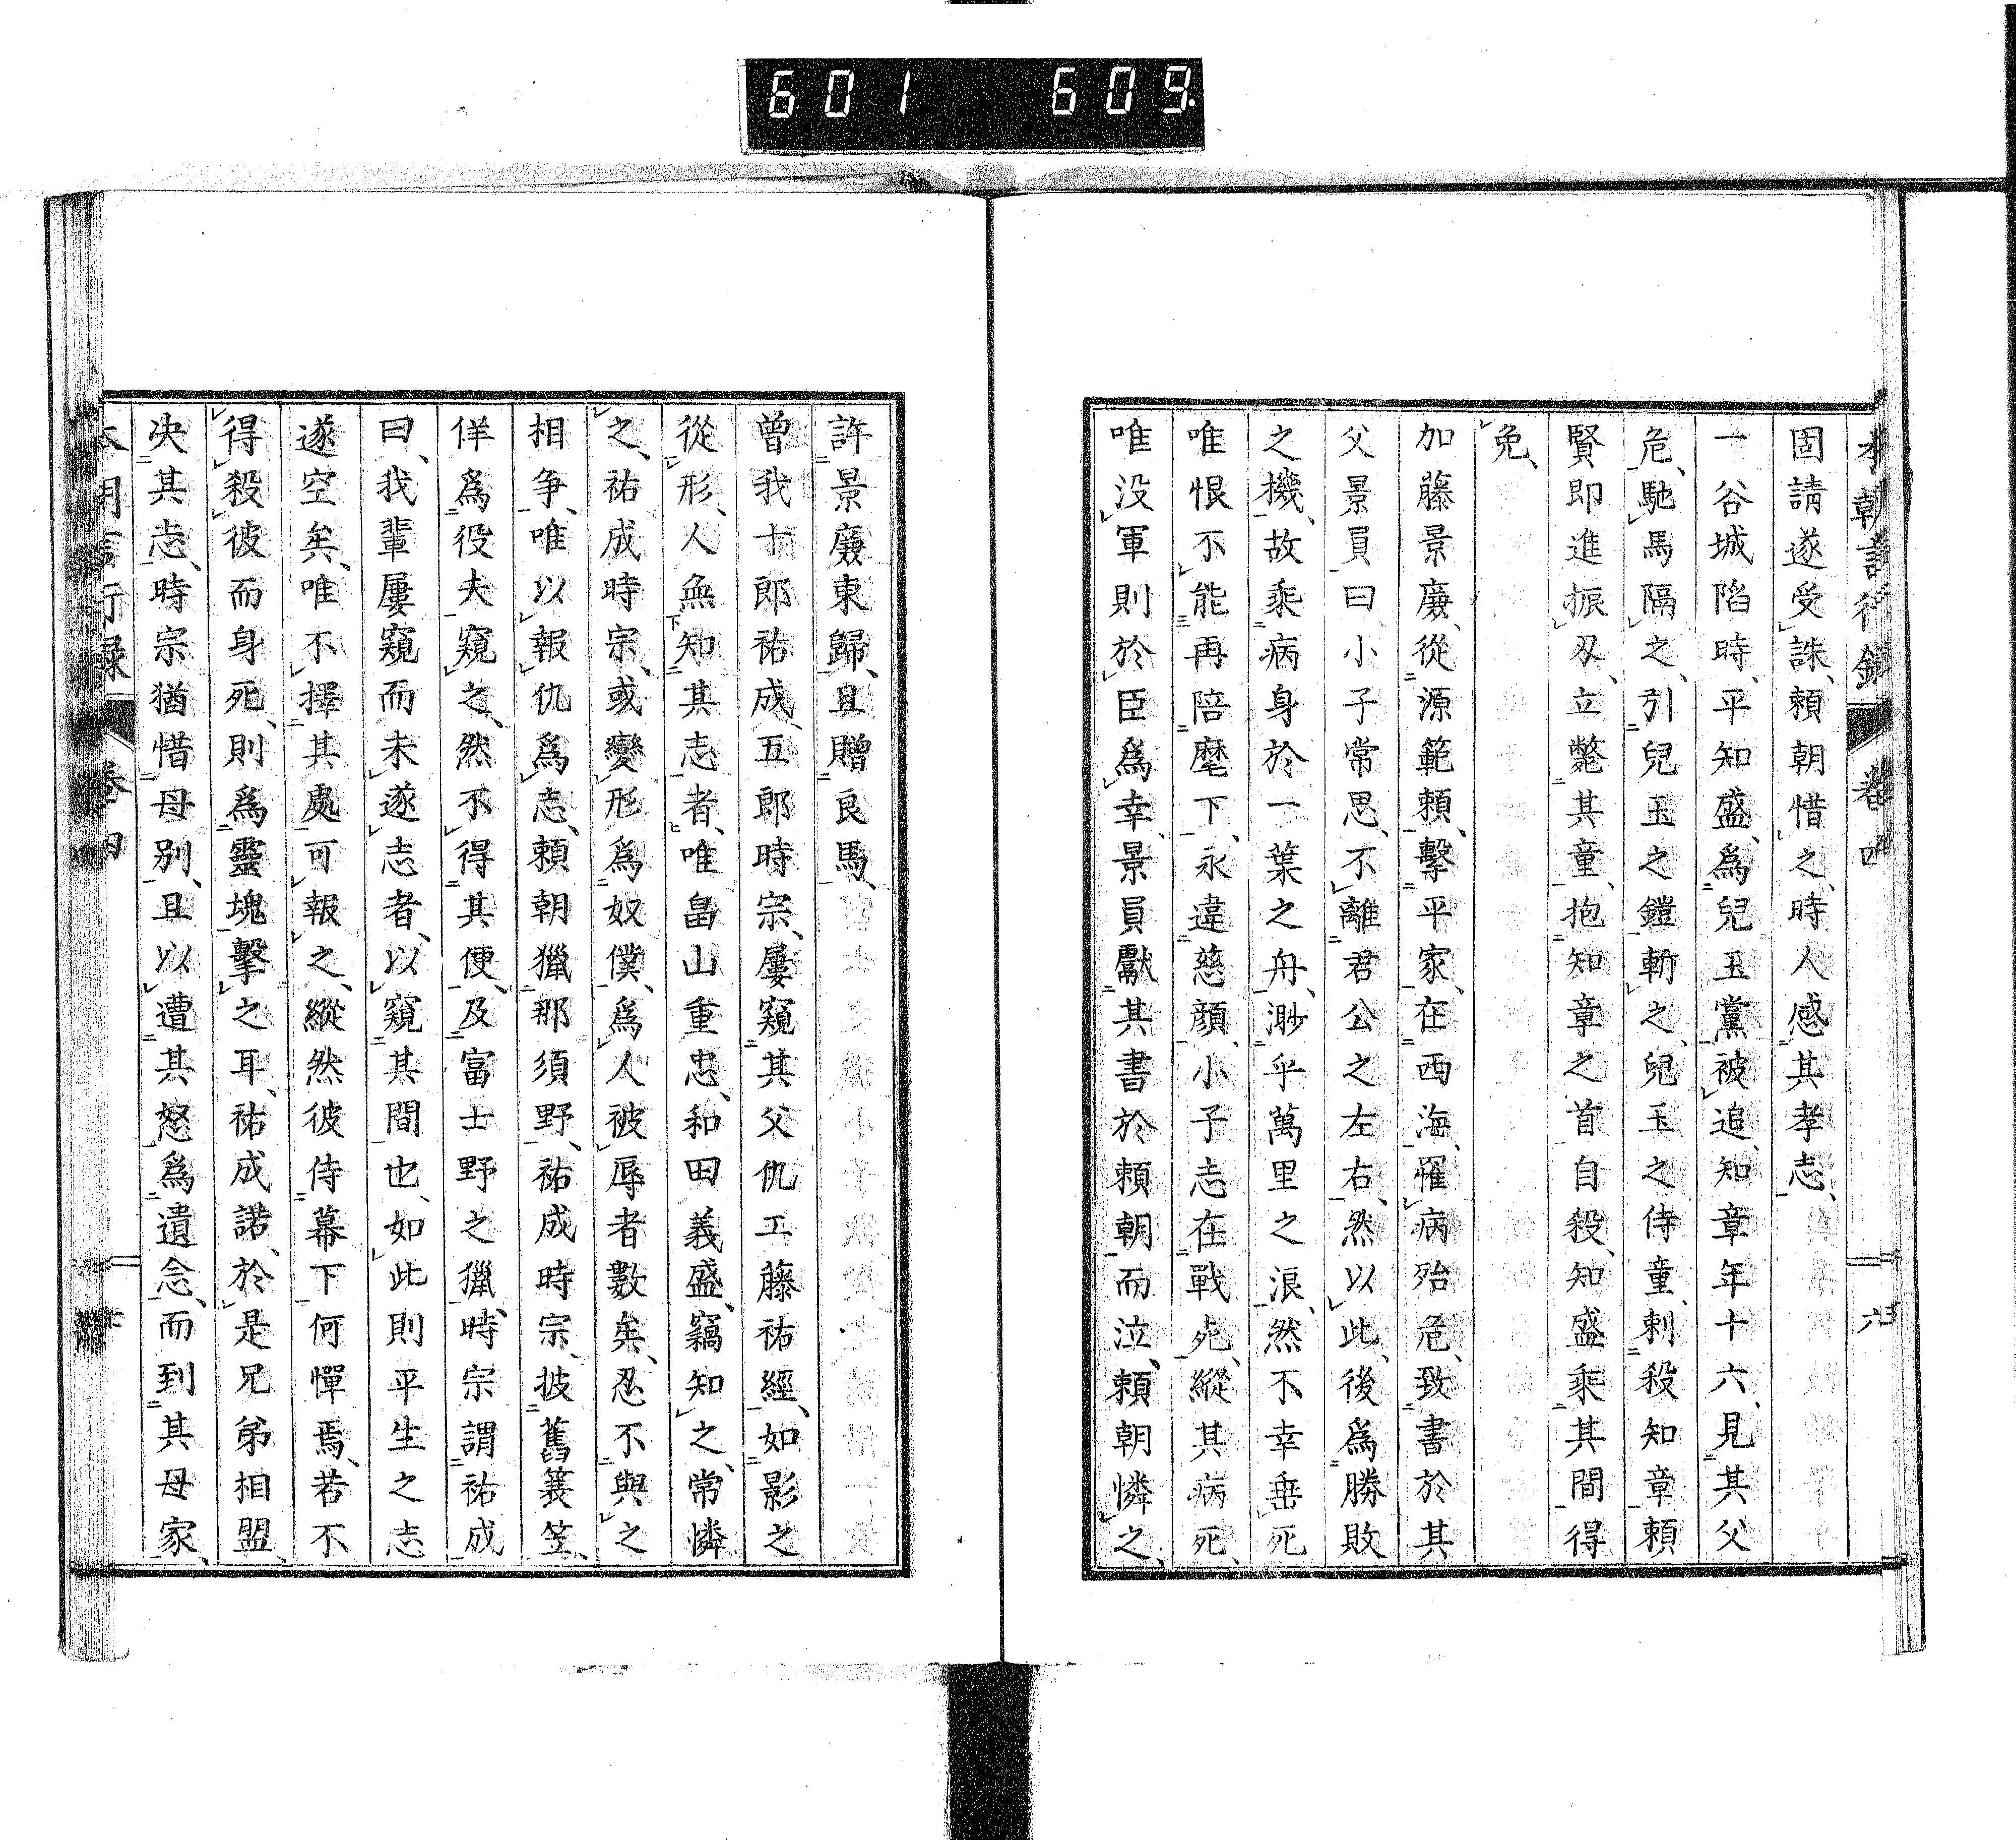 601 609
本朝言行録 卷四 六
固請遂受誅、頼朝惜之、時人感其孝志、
一谷城陷時、平知盛、爲兒玉黨被追、知章年十六、見其父
危、馳馬隔之、引兒玉之鎧斬之、兒玉之侍童、刺殺知章、頼
賢即進振刄、立斃其童、抱知章之首自殺、知盛乘其間得
免、
加藤景廉、從源範頼、擊平家、在西海、罹病殆危、致書於其
父景員曰、小子常思、不離君公之左右、然以此、後爲勝敗
之機、故乘病身於一葉之舟、渺乎萬里之浪、然不幸垂死
唯恨不能再陪麾下、永違慈顔、小子志在戰死、縱其病死、
唯没軍則於臣爲幸、景員獻其書於頼朝而泣、頼朝憐之、
許景廉東歸、且贈良馬、
曾我十郎祐成、五郎時宗、屢窺其父仇工藤祐經、如影之
從形、人無知其志者、唯畠山重忠、和田義盛、竊知之、常憐
之、祐成時宗、或變形爲奴僕、爲人被辱者數矣、忍不與之
相争、唯以報仇爲志、頼朝獵那須野、祐成時宗、披舊簑笠、
佯爲役夫窺之、然不得其便、及富士野之獵、時宗謂祐成
曰、我輩屢窺而未遂志者、以窺其間也、如此則平生之志
遂空矣、唯不擇其處可報之、縱然彼侍幕下何憚焉、若不
得殺彼而身死、則爲靈塊擊之耳、祐成諾、於是兄弟相盟、
决其志、時宗猶惜母别、且以遭其怒爲遺念、而到其母家、
本朝言行録 卷四 七